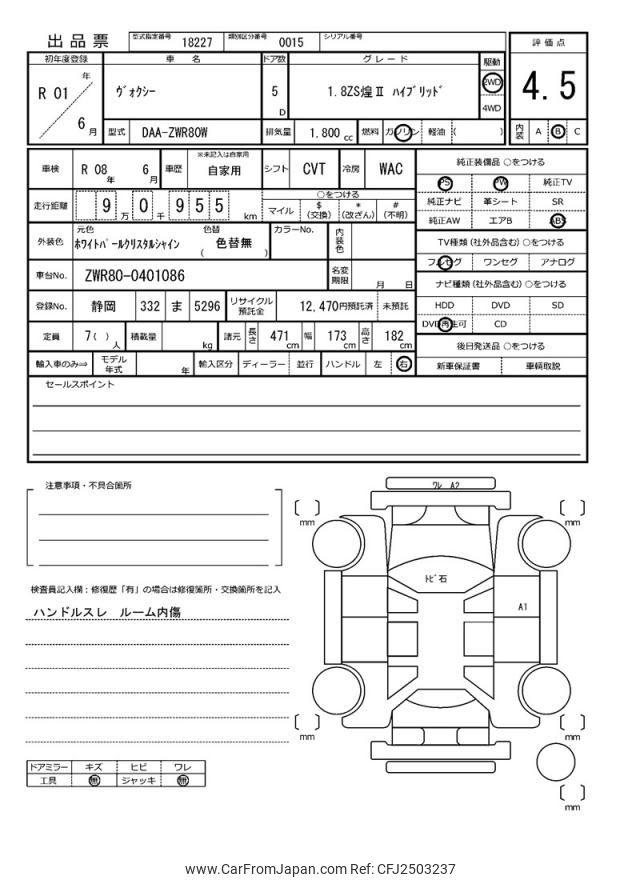 出品票 型式指定番号 18227 類別区分番号 0015 シリアル番号
初年度登録 車名 ドア数 グレード 駆動 評価点
R 01 年 6 月 ヴォクシー 5 D 1.8ZS煌Ⅱ ハイブリッド 2WD 4WD 4.5
型式 DAA-ZWR80W 排気量 1,800 cc 燃料 ガソリン 軽油 ( ) 内装 A B C
車検 R 08 年 6 月 車歴 ※未記入は自家用 自家用 シフト CVT 冷房 WAC 純正装備品 ○をつける
PS PW 純正TV
走行距離 9 万 0 千 9 5 5 km ○をつける
マイル $ (交換) * (改ざん) # (不明)
純正ナビ 革シート SR
純正AW エアB ABS
外装色 元色 ホワイトパールクリスタルシャイン 色替 ( 色替無 ) カラーNo. 内装色
TV種類 (社外品含む) ○をつける
フルセグ ワンセグ アナログ
車台No. ZWR80-0401086 名変期限 月 日
ナビ種類 (社外品含む) ○をつける
HDD DVD SD
登録No. 静岡 332 ま 5296 リサイクル預託金 12,470円預託済 未預託
DVD再生可 CD
定員 7 ( ) 人 積載量 kg 諸元 長さ 471 cm 幅 173 cm 高さ 182 cm
後日発送品 ○をつける
輸入車のみ⇒ モデル年式 年 輸入区分 ディーラー 並行 ハンドル 左 右
新車保証書 車輌取説
セールスポイント
注意事項・不具合箇所
ワレ A2
mm mm
トビ石
A1
検査員記入欄：修復歴「有」の場合は修復箇所・交換箇所を記入
ハンドルスレ ルーム内傷
mm mm
ドアミラー キズ ヒビ ワレ
工具 無 ジャッキ 無
mm
www.CarFromJapan.com Ref: CFJ2503237